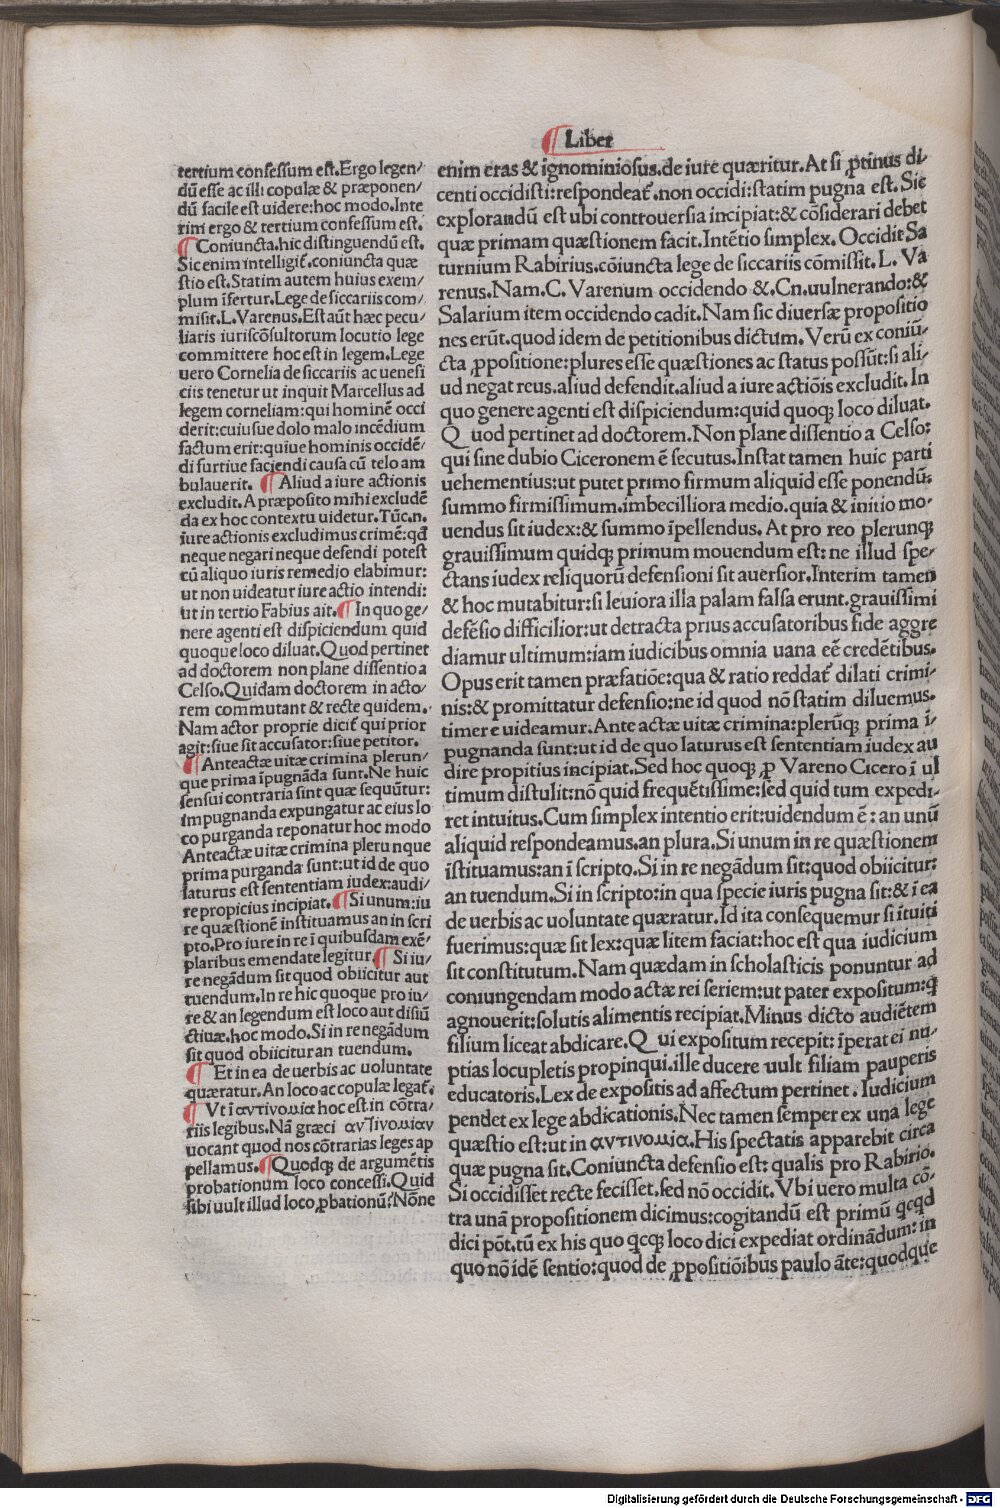 ¶ Liber
tertium confessum est. Ergo legen/
dū esse ac illi copulæ & præponen/
dū facile est uidere: hoc modo. Inte
rini ergo & tertium confessum est.
¶ Coniuncta. hic distinguendū est.
Sic enim intelligit̄. coniuncta quæ
stio est. Statim autem huius exem/
plum īfertur. Lege de siccariis com/
misit. L. Varenus. Est aūt hæc pecu/
liaris iuriscōsultorum locutio lege
committere hoc est in legem. Lege
uero Cornelia de siccariis ac uenefi
ciis tenetur ut inquit Marcellus ad
legem corneliam: qui hominē occi
derit: cuiusue dolo malo incēdium
factum erit: quiue hominis occidē/
di furtiue faciendi causa cū telo am
bulauerit. ¶ Aliud a iure actionis
excludit. A præposito mihi excludē
da ex hoc contextu uidetur. Tūc. n.
iure actionis excludimus crimē: qđ
neque negari neque defendi potest
cū aliquo iuris remedio elabimur:
ut non uideatur iure actio intendi:
ut in tertio Fabius ait. ¶ In quo ge/
nere agenti est dispiciendum quid
quoque loco diluat. Quod pertinet
ad doctorem non plane dissentio a
Celso. Quidam doctorem in acto/
rem commutant & recte quidem.
Nam actor proprie dicit̄ qui prior
agit: siue sit accusator: siue petitor.
¶ Anteactæ uitæ crimina plerun/
que prima īpugnāda sunt. Ne huic
sensui contraria sint quæ sequūtur:
impugnanda expungatur ac eius lo
co purganda reponatur hoc modo
Anteactæ uitæ crimina plerunque
prima purganda sunt: ut id de quo
laturus est sententiam iudex: audi/
re propicius incipiat. ¶ Si unum: iu
re quæstionē instituamus an in scri
pto. Pro iure in re ī quibusdam exē/
plaribus emendate legitur. ¶ Si iu/
re negādum sit quod obiicitur aut
tuendum. In re hic quoque pro iu/
re & an legendum est loco aut disiū
ctiuæ. hoc modo. Si in re negādum
sit quod obiicitur an tuendum.
¶ Et in ea de uerbis ac uoluntate
quæratur. An loco ac copulæ legat̄.
¶ Vt ī αντινομια hoc est in cōtra/
riis legibus. Nā græci αντινομιαν
uocant quod nos cōtrarias leges ap
pellamus. ¶ Quodqꝫ de argumētis
probationum loco concessi. Quid
sibi uult illud loco ꝓbationū? Nōne
enim eras & ignominiosus. de iure quæritur. At si ꝓtinus di/
centi occidisti: respondeat̄. non occidi: statim pugna est. Sic
explorandū est ubi controuersia incipiat: & cōsiderari debet
quæ primam quæstionem facit. Intētio simplex. Occidit Sa
turnium Rabirius. cōiuncta lege de siccariis cōmissit. L. Va
renus. Nam. C. Varenum occidendo &. Cn. uulnerando: &
Salarium item occidendo cadit. Nam sic diuersæ propositio
nes erūt. quod idem de petitionibus dictum. Verū ex coniū/
cta ꝓpositione: plures esse quæstiones ac status possūt: si ali/
ud negat reus. aliud defendit. aliud a iure actiōis excludit. In
quo genere agenti est dispiciendum: quid quoqꝫ loco diluat.
Quod pertinet ad doctorem. Non plane dissentio a Celso:
qui sine dubio Ciceronem ē secutus. Instat tamen huic parti
uehementius: ut putet primo firmum aliquid esse ponendū:
summo firmissimum. imbecilliora medio. quia & initio mo/
uendus sit iudex: & summo īpellendus. At pro reo plerunqꝫ
grauissimum quidqꝫ primum mouendum est: ne illud spe/
ctans iudex reliquorū defensioni sit auersior. Interim tamen
& hoc mutabitur: si leuiora illa palam falsa erunt. grauissimi
defēsio difficilior: ut detracta prius accusatoribus fide aggre
diamur ultimum: iam iudicibus omnia uana eē credētibus.
Opus erit tamen præfatiōe: qua & ratio reddat̄ dilati crimi/
nis: & promittatur defensio: ne id quod nō statim diluemus.
timere uideamur. Ante actæ uitæ crimina: plerūqꝫ prima ī/
pugnanda sunt: ut id de quo laturus est sententiam iudex au
dire propitius incipiat. Sed hoc quoqꝫ ꝓ Vareno Cicero ī ul
timum distulit: nō quid frequētissime: sed quid tum expedi/
ret intuitus. Cum simplex intentio erit: uidendum ē: an unū
aliquid respondeamus. an plura. Si unum in re quæstionem
īstituamus: an ī scripto. Si in re negādum sit: quod obiicitur:
an tuendum. Si in scripto: in qua specie iuris pugna sit: & ī ea
de uerbis ac uoluntate quæratur. Id ita consequemur si ītuiti
fuerimus: quæ sit lex: quæ litem faciat: hoc est qua iudicium
sit constitutum. Nam quædam in scholasticis ponuntur ad
coniungendam modo actæ rei seriem: ut pater expositum: ꝗ
agnouerit: solutis alimentis recipiat. Minus dicto audiētem
filium liceat abdicare. Qui expositum recepit: īperat ei nu/
ptias locupletis propinqui. ille ducere uult filiam pauperis
educatoris. Lex de expositis ad affectum pertinet. Iudicium
pendet ex lege abdicationis. Nec tamen semper ex una lege
quæstio est: ut in αντινομια. His spectatis apparebit circa
quæ pugna sit. Coniuncta defensio est: qualis pro Rabirio.
Si occidisset recte fecisset. sed nō occidit. Vbi uero multa cō/
tra unā propositionem dicimus: cogitandū est primū qcqd
dici pōt. tū ex his quo qcqꝫ loco dici expediat ordinādum: in
quo nō idē sentio: quod de ꝓpositiōibus paulo āte: quodque
Digitalisierung gefördert durch die Deutsche Forschungsgemeinschaft - DFG